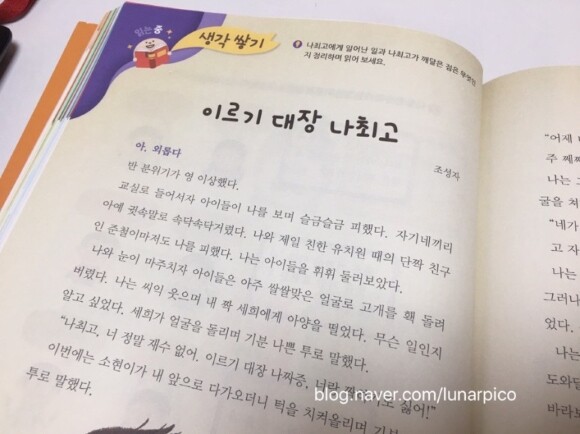 읽는 중
생각 쌓기
나최고에게 일어난 일과 나최고가 깨달은 점은
지 정리하며 읽어 보세요.
이르기 대장 나최고
조성자
아, 외롭다
반 분위기가 영 이상했다.
교실로 들어서자 아이들이 나를 보며 슬금슬금 피했다. 자기네끼리
아예 귓속말로 속닥속닥거렸다. 나와 제일 친한 유치원 때의 단짝 친구
인 준철이마저도 나를 피했다. 나는 아이들을 휘휘 둘러보았다.
나와 눈이 마주치자 아이들은 아주 쌀쌀맞은 얼굴로 고개를 홱 돌려
버렸다. 나는 씨익 웃으며 내 짝 세희에게 아양을 떨었다. 무슨 일인지
알고 싶었다. 세희가 얼굴을 돌리며 기분 나쁜 투로 말했다.
“나최고, 너 정말 재수 없어. 이르기 대장 나짜증, 너랑 싫어!”
이번에는 소현이가 내 앞으로 다가오더니 턱을 치켜올리며
투로 말했다.
“어제
주 째
나는
굴을 쳐
“네가
고 자
나는
그러나
었다.
나는
도와달
바라보
blog.naver.com/lunarpico